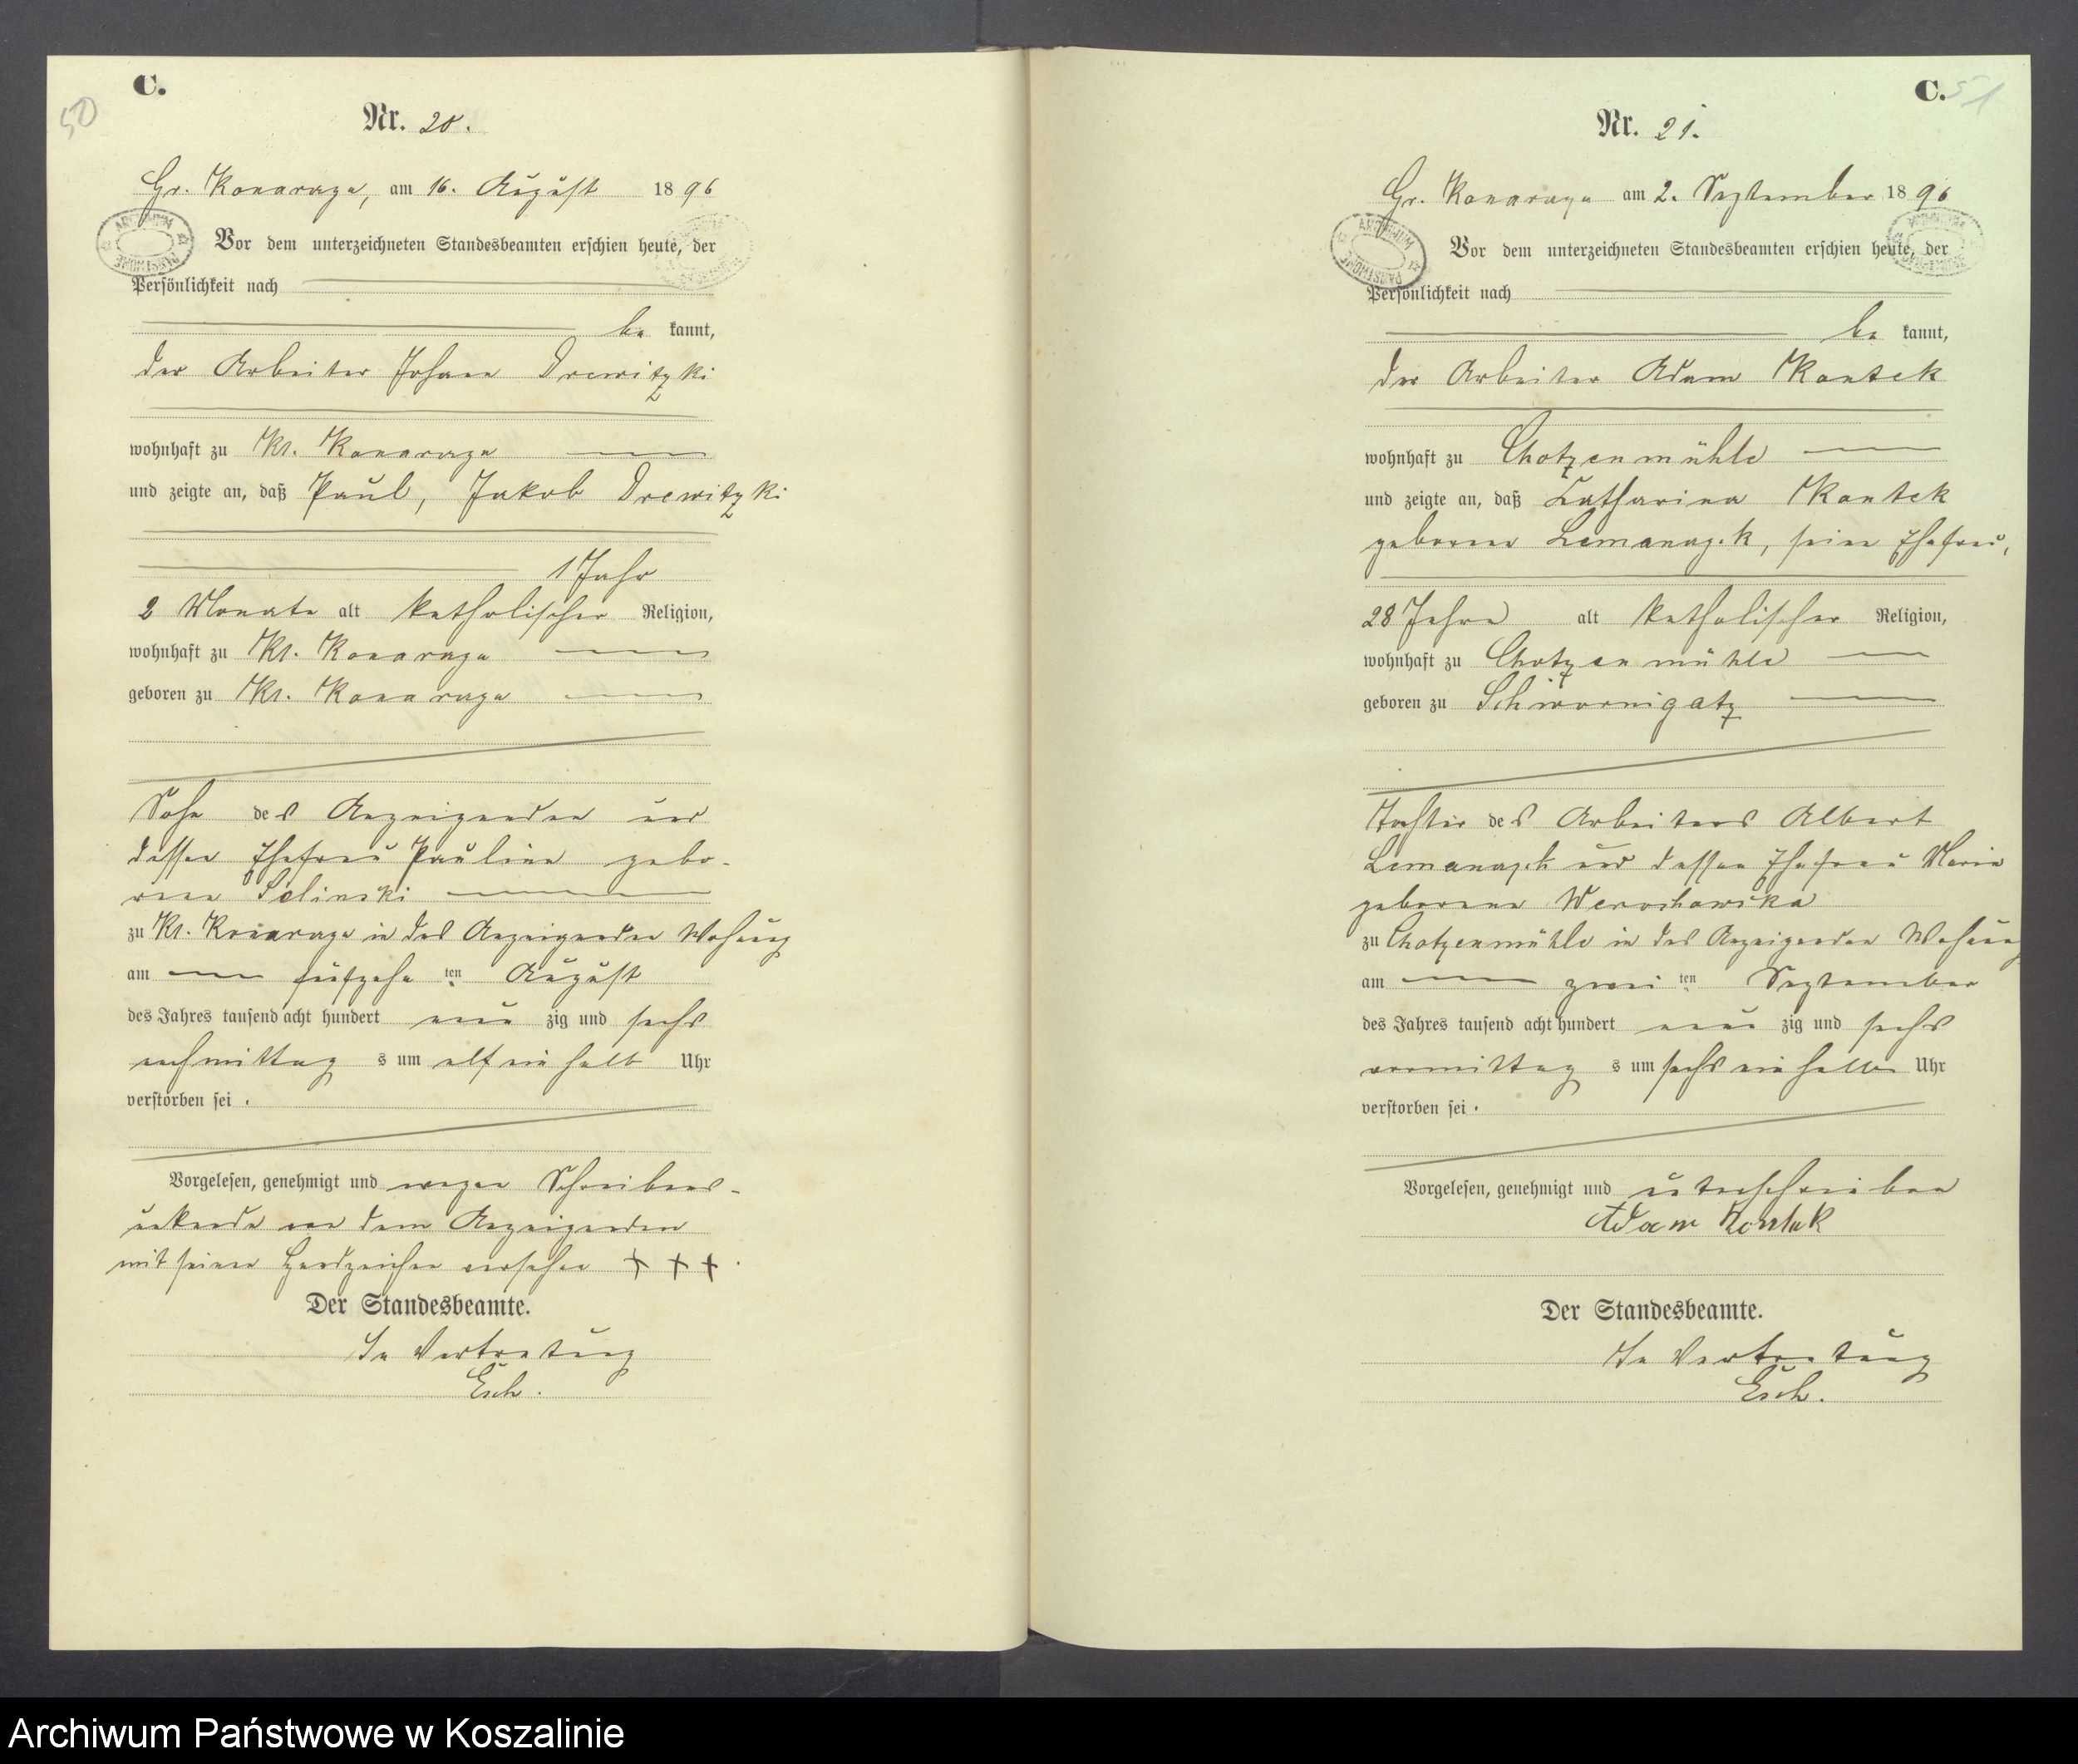 50
C.
Nr. 20.
Gr. Konarzyn, am 16. August 1896
Vor dem unterzeichneten Standesbeamten erschien heute, der
Persönlichkeit nach
be kannt,
der Arbeiter Johann Drewitzki
wohnhaft zu Kl. Konarzyn
und zeigte an, daß Paul, Jakob Drewitzki
1 Jahr
2 Monate alt katholischer Religion,
wohnhaft zu Kl. Konarzyn
geboren zu Kl. Konarzyn
Sohn des Anzeigenden und
dessen Ehefrau Pauline gebo-
rene Selinski
zu Kl. Konarzyn in des Anzeigenden Wohnung
am fünfzehn ten August
des Jahres tausend acht hundert neun zig und sechs
nachmittag s um elf ein halb Uhr
verstorben sei .
Vorgelesen, genehmigt und wegen Schreibens-
unkunde von dem Anzeigenden
mit seinem Handzeichen versehen + + + .
Der Standesbeamte.
In Vertretung
Esch.
C. 51
Nr. 21.
Gr. Konarzyn am 2. September 1896
Vor dem unterzeichneten Standesbeamten erschien heute, der
Persönlichkeit nach
be kannt,
der Arbeiter Adam Kontek
wohnhaft zu Chotzenmühle
und zeigte an, daß Katharina Kontek
geborene Lemanczik, seine Ehefrau,
28 Jahre alt katholischer Religion,
wohnhaft zu Chotzenmühle
geboren zu Schwornigatz
Tochter des Arbeiters Albert
Lemanczik und dessen Ehefrau Marie
geborene
zu Chotzenmühle in des Anzeigenden Wohnung
am zwei ten September
des Jahres tausend acht hundert neun zig und sechs
vormittag s um sechs ein halb Uhr
verstorben sei .
Vorgelesen, genehmigt und unterschrieben
Adam Kontek
Der Standesbeamte.
In Vertretung
Esch.
Archiwum Państwowe w Koszalinie